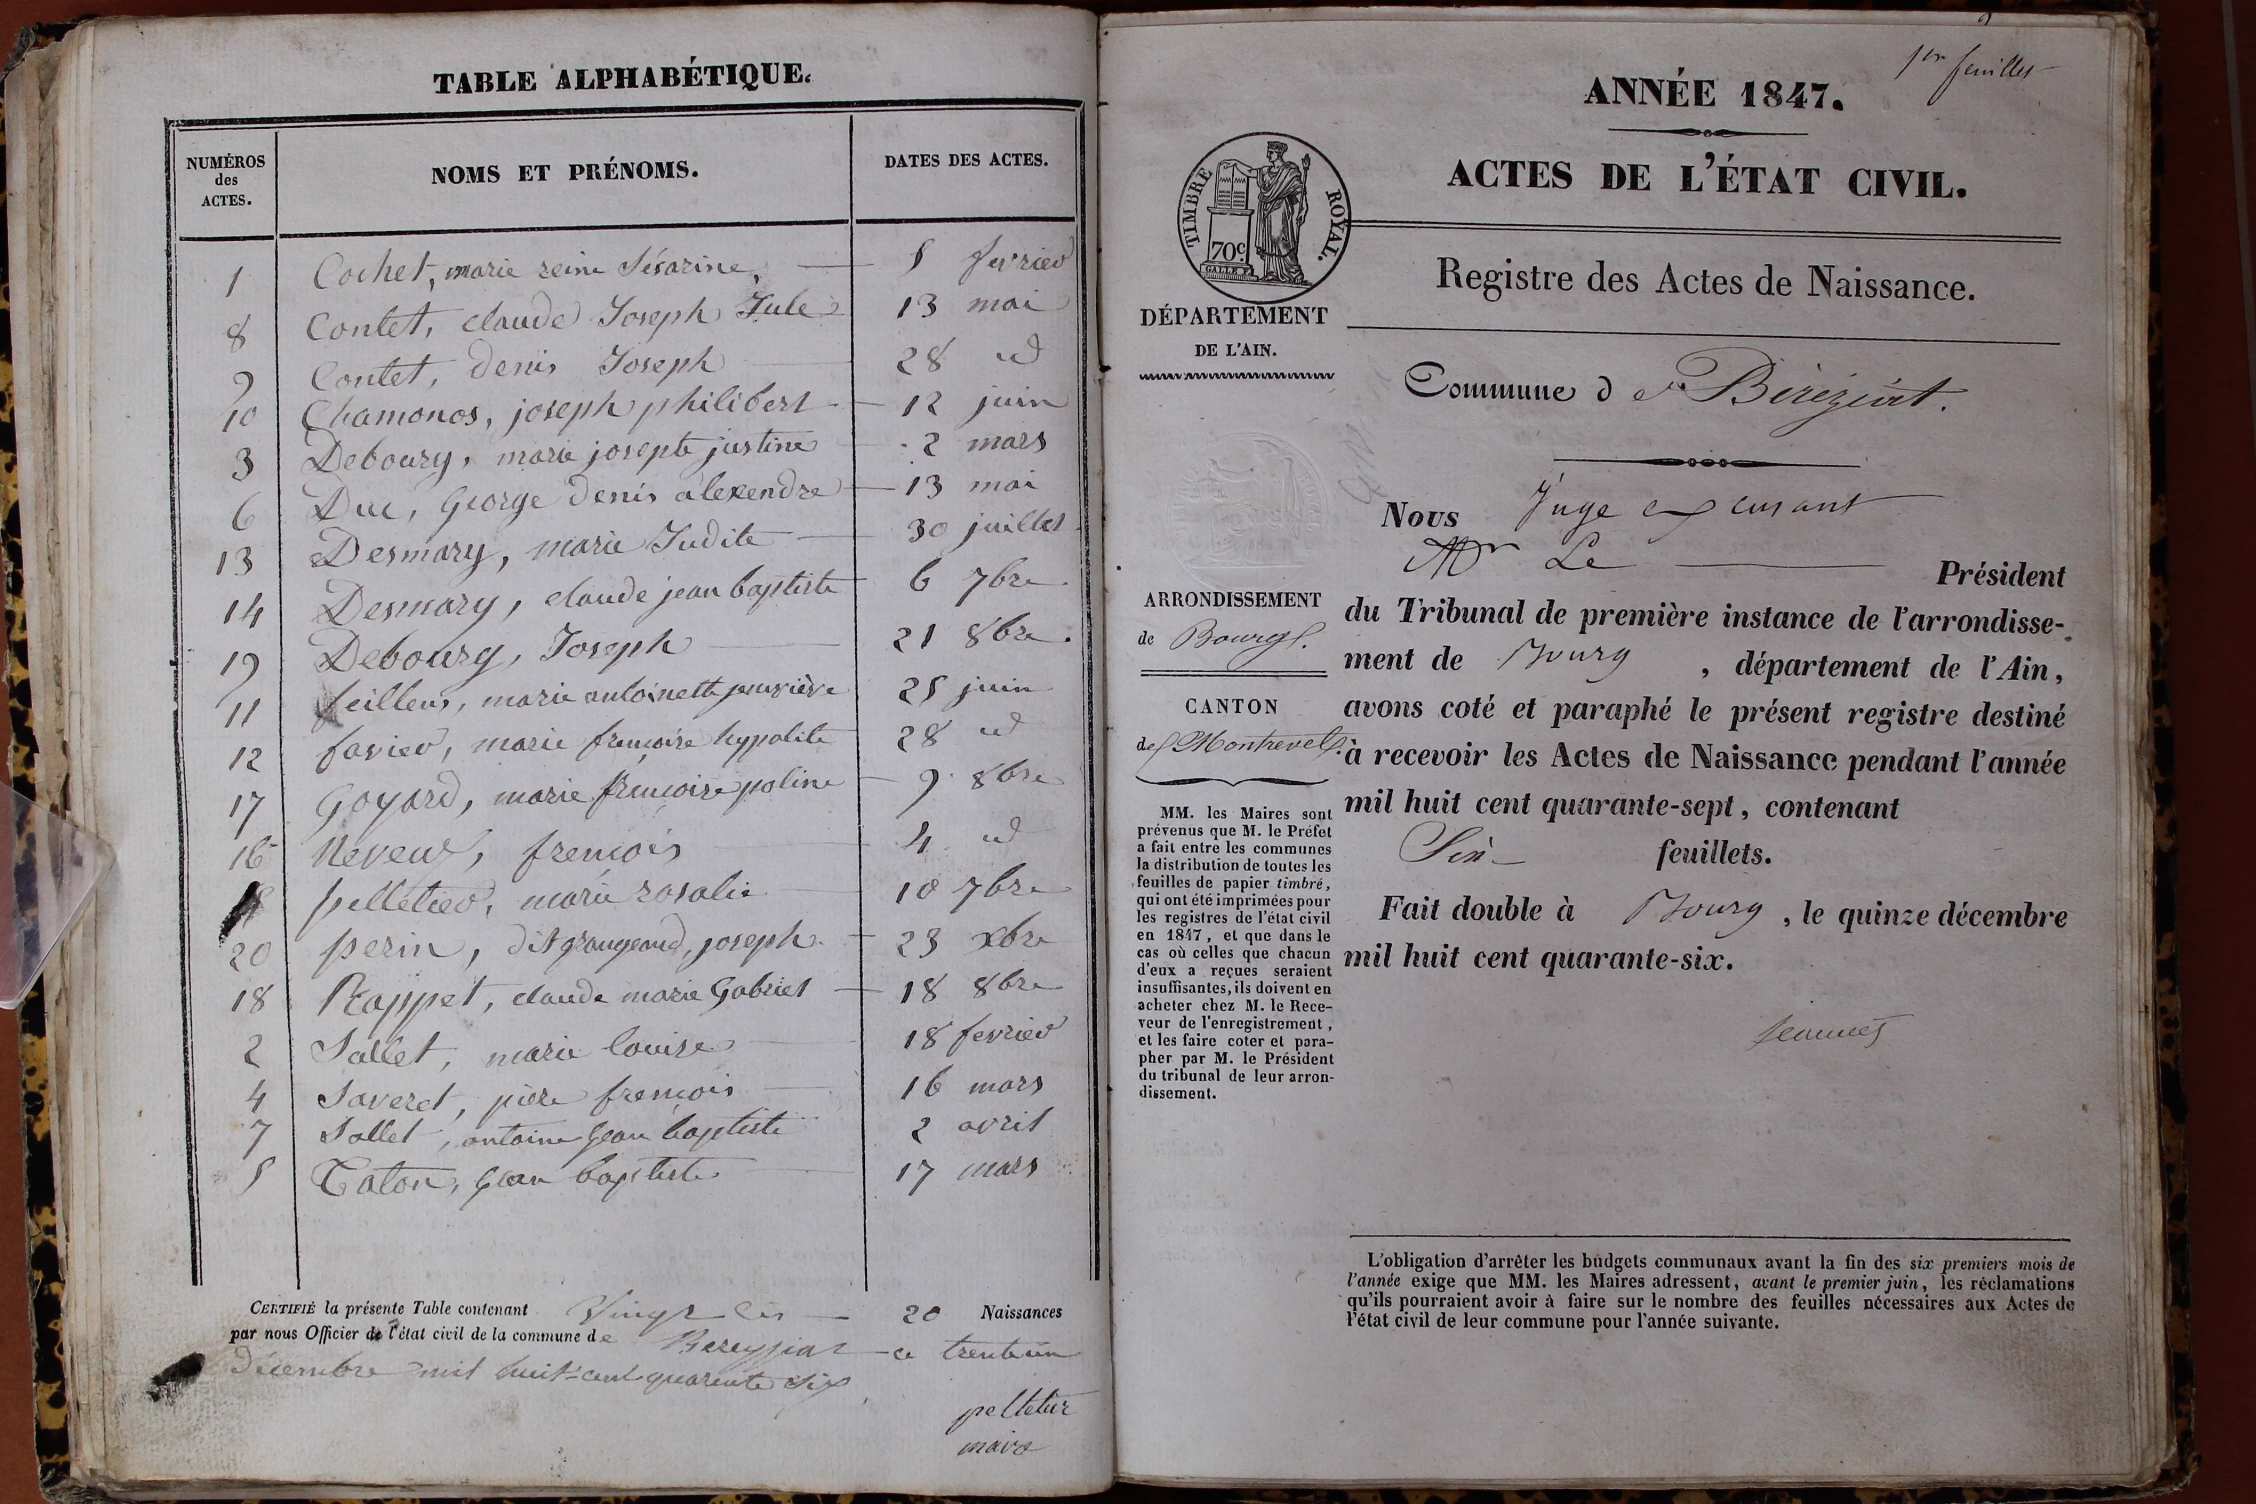 TABLE ALPHABÉTIQUE.
NUMÉROS
des
ACTES.
NOMS ET PRÉNOMS.
DATES DES ACTES.
1 Cochet, marie reine Césarine, 5 fevrier
8 Contet, claude Joseph Jule 13 mai
9 Contet, denis Joseph 28 id
10 Chamonos, joseph philibert 12 juin
3 Debourg, marie josepte justine 2 mars
6 Duc, George denis alexendre 13 mai
13 Desmary, marie Judite 30 juillet
14 Desmary, claude jean baptiste 6 7bre
19 Debourg, Joseph 21 8bre.
11 feillens, marie antoinette 25 juin
12 favier, marie frencoise hypolite 28 id
17 Goyard, marie frencoise poline 9 8bre
16 Neveux, frencois 4 id
pelletier, marie rosalie 10 7bre
20 perin, dit grangeand, joseph 23 xbre
18 Rappet, claude marie Gabriel 18 8bre
2 Sallet, marie louise 18 fevrier
4 Saveret, piere frencois 16 mars
7 Sallet, antoine Jean baptiste 2 avril
5 Taton, Jean baptiste 17 mars
CERTIFIÉ la présente Table contenant Vingt 20 Naissances
par nous Officier de l'état civil de la commune de Bereyziat ce trente un
Décembre mil huit cent quarente Six
pelletier
maire
1er feuillet
ANNÉE 1847.
ACTES DE L'ÉTAT CIVIL.
TIMBRE ROYAL.
70c.
DÉPARTEMENT
DE L'AIN.
Registre des Actes de Naissance.
Commune de Béréziat.
ARRONDISSEMENT
de Bourg.
CANTON
de Montrevel.
MM. les Maires sont
prévenus que M. le Préfet
a fait entre les communes
la distribution de toutes les
feuilles de papier timbré,
qui ont été imprimées pour
les registres de l'état civil
en 1847, et que dans le
cas où celles que chacun
d'eux a reçues seraient
insuffisantes, ils doivent en
acheter chez M. le Rece-
veur de l'enregistrement,
et les faire coter et para-
pher par M. le Président
du tribunal de leur arron-
dissement.
Nous Juge
Mr Le Président
du Tribunal de première instance de l'arrondisse-
ment de Bourg, département de l'Ain,
avons coté et paraphé le présent registre destiné
à recevoir les Actes de Naissance pendant l'année
mil huit cent quarante-sept, contenant
Six feuillets.
Fait double à Bourg, le quinze décembre
mil huit cent quarante-six.
L'obligation d'arrêter les budgets communaux avant la fin des six premiers mois de
l'année exige que MM. les Maires adressent, avant le premier juin, les réclamations
qu'ils pourraient avoir à faire sur le nombre des feuilles nécessaires aux Actes de
l'état civil de leur commune pour l'année suivante.